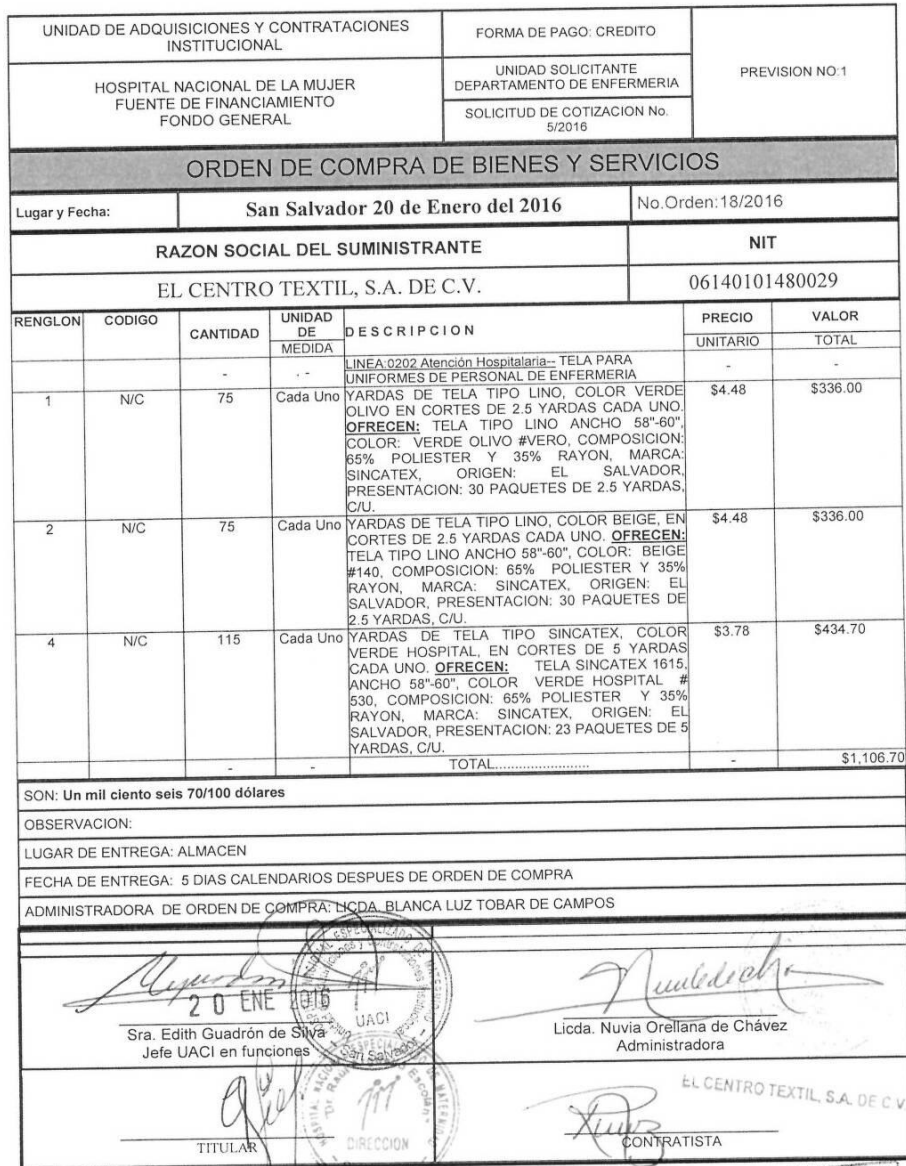 UNIDAD DE ADQUISICIONES Y CONTRATACIONES
INSTITUCIONAL
HOSPITAL NACIONAL DE LA MUJER
FUENTE DE FINANCIAMIENTO
FONDO GENERAL
FORMA DE PAGO: CREDITO
UNIDAD SOLICITANTE
DEPARTAMENTO DE ENFERMERIA
SOLICITUD DE COTIZACION No.
5/2016
PREVISION NO:1
ORDEN DE COMPRA DE BIENES Y SERVICIOS
Lugar y Fecha: San Salvador 20 de Enero del 2016 No.Orden:18/2016
RAZON SOCIAL DEL SUMINISTRANTE NIT
EL CENTRO TEXTIL, S.A. DE C.V. 06140101480029
RENGLON CODIGO CANTIDAD UNIDAD DE MEDIDA DESCRIPCION PRECIO UNITARIO VALOR TOTAL
- . - LINEA:0202 Atención Hospitalaria-- TELA PARA - -
UNIFORMES DE PERSONAL DE ENFERMERIA
1 N/C 75 Cada Uno YARDAS DE TELA TIPO LINO, COLOR VERDE $4.48 $336.00
OLIVO EN CORTES DE 2.5 YARDAS CADA UNO.
OFRECEN: TELA TIPO LINO ANCHO 58"-60",
COLOR: VERDE OLIVO #VERO, COMPOSICION:
65% POLIESTER Y 35% RAYON, MARCA:
SINCATEX, ORIGEN: EL SALVADOR,
PRESENTACION: 30 PAQUETES DE 2.5 YARDAS,
C/U.
2 N/C 75 Cada Uno YARDAS DE TELA TIPO LINO, COLOR BEIGE, EN $4.48 $336.00
CORTES DE 2.5 YARDAS CADA UNO. OFRECEN:
TELA TIPO LINO ANCHO 58"-60", COLOR: BEIGE
#140, COMPOSICION: 65% POLIESTER Y 35%
RAYON, MARCA: SINCATEX, ORIGEN: EL
SALVADOR, PRESENTACION: 30 PAQUETES DE
2.5 YARDAS, C/U.
4 N/C 115 Cada Uno YARDAS DE TELA TIPO SINCATEX, COLOR $3.78 $434.70
VERDE HOSPITAL, EN CORTES DE 5 YARDAS
CADA UNO. OFRECEN: TELA SINCATEX 1615,
ANCHO 58"-60", COLOR VERDE HOSPITAL #
530, COMPOSICION: 65% POLIESTER Y 35%
RAYON, MARCA: SINCATEX, ORIGEN: EL
SALVADOR, PRESENTACION: 23 PAQUETES DE 5
YARDAS, C/U.
- - TOTAL........................ - $1,106.70
SON: Un mil ciento seis 70/100 dólares
OBSERVACION:
LUGAR DE ENTREGA: ALMACEN
FECHA DE ENTREGA: 5 DIAS CALENDARIOS DESPUES DE ORDEN DE COMPRA
ADMINISTRADORA DE ORDEN DE COMPRA: LICDA. BLANCA LUZ TOBAR DE CAMPOS
20 ENE 2016
UACI
San Salvador
Sra. Edith Guadrón de Silva
Jefe UACI en funciones
Licda. Nuvia Orellana de Chávez
Administradora
DIRECCION
TITULAR
EL CENTRO TEXTIL, S.A. DE C.V.
CONTRATISTA